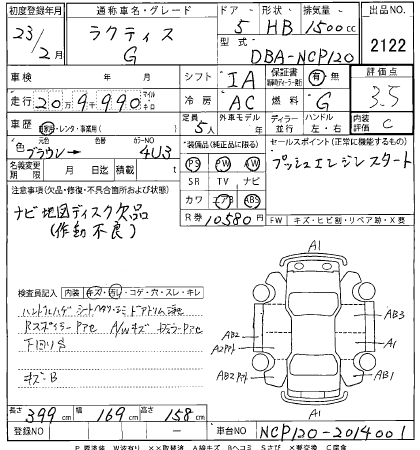 初度登録年月 通称車名・グレード ドア 形状 排気量 出品NO.
23/2月 ラクティス G 5 HB 1500cc 2122
型式 DBA-NCP120
車検 年 月 シフト IA 保証書 有 無 評価点
走行 20万9千990 マイル キロ 冷房 AC 燃料 G 3.5
車歴 自家用・レンタ・事業用( ) 定員 5人 外車モデル 年 ディーラー 並行 ハンドル 左・右 内装評価 C
色 元色 ブラウン 色替 カラーNO 4U3 装備品(純正品に限る) セールスポイント(正常に機能するもの)
名義変更期限 月 日 積載 t PS PW AW プッシュエンジンスタート
SR TV ナビ
注意事項(欠品・修復・不具合箇所および状態) カワ エアB ABS
ナビ地図ディスク欠品 R券 10580円 FW キズ・ヒビ割・リペア跡・X要
(作動不良)
A1
検査員記入 内装 キズ・汚レ・コゲ・穴・スレ・キレ
ハンドルハゲ
AB3
AB2
A/Wキズ
A1
下回りS
AB1
キズ・B
A1
長さ 399cm 幅 169cm 高さ 158cm
登録NO ー 車台NO NCP120-2014001
P要塗装 W波有り ××取替済 A線キズ Bヘコミ Sさび ×要交換 C腐食